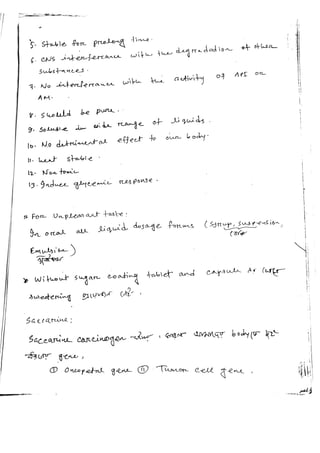 5. Stable for prolong time.
6. CNS interferrance with the degradadion of other
substances.
7. No interferrance with the activity of API or
AM.
8. Should be pure.
9. Soluble in wide range of liquids.
10. No detrimental effect to our body.
11. heat stable
12. Non toxic
13. Induce glycemic response.
For Unpleasant taste:
In oral all liquid dosage forms (Syrup, suspension,
Emulsion)
Without sugar coating tablet and capsule
sweetening
Saccarine:
Saccarine carcinogen body
gene,
① Oncopetal gene ② Tumor cell gene.